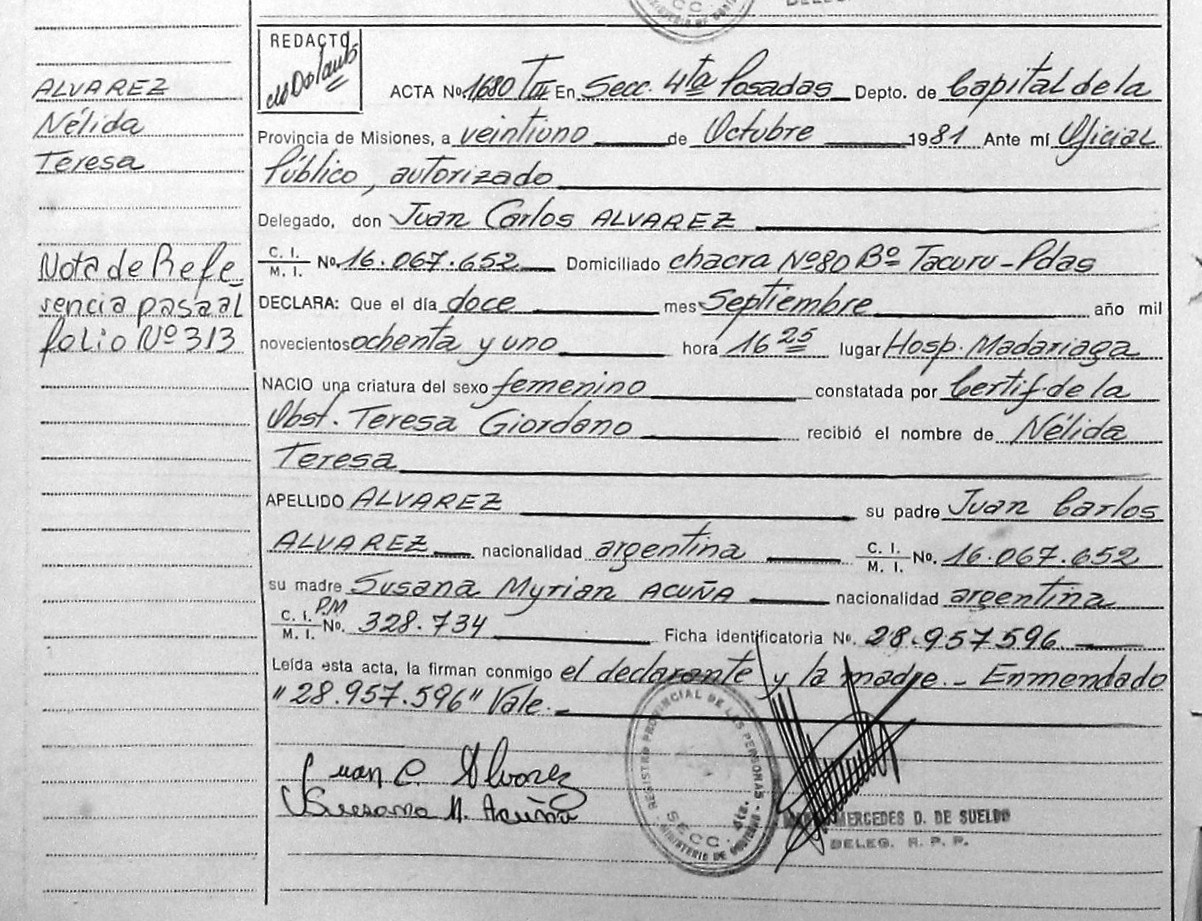 ALVAREZ
Nélida
Teresa
Nota de Refe
rencia pasa al
folio Nº 313
REDACTO
ACTA No. 1680 TIII En Secc. 4ta Posadas Depto. de Capital de la
Provincia de Misiones, a veintiuno de Octubre 1981 Ante mí Oficial
Público, autorizado
Delegado, don Juan Carlos ALVAREZ
C. I.
M. I. No. 16.067.652 Domiciliado chacra Nº 80 Bº Tacuru - Pdas
DECLARA: Que el día doce mes Septiembre año mil
novecientos ochenta y uno hora 16 25 lugar Hosp. Madariaga
NACIO una criatura del sexo femenino constatada por Certif. de la
Obst. Teresa Giordano recibió el nombre de Nélida
Teresa
APELLIDO ALVAREZ su padre Juan Carlos
ALVAREZ nacionalidad argentina C. I. M. I. No. 16.067.652
su madre Susana Myrian ACUÑA nacionalidad argentina
C. I. M. I. PM No. 328.734 Ficha identificatoria No. 28.957.596
Leída esta acta, la firman conmigo el declarante y la madre. - Enmendado
"28.957.596" Vale. -
Juan C. Alvarez
Susana M. Acuña
REGISTRO PROVINCIAL DE LAS PERSONAS
SECC. 4ta.
MERCEDES D. DE SUELDO
DELEG. R. P. P.